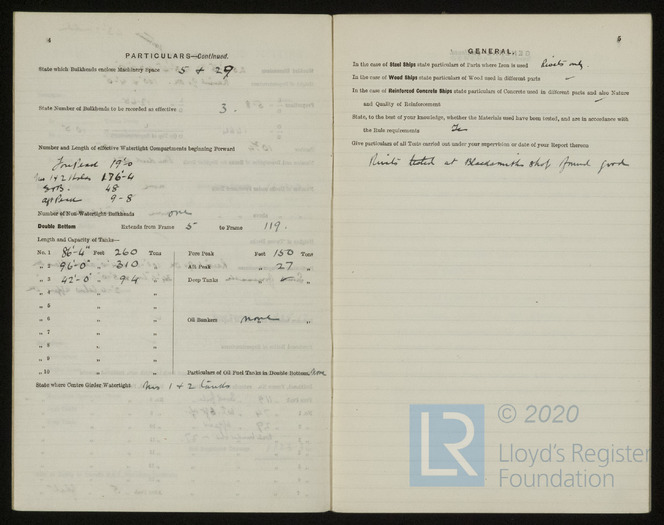 4
PARTICULARS—Continued.
State which Bulkheads enclose Machinery Space 5 + 29
State Number of Bulkheads to be recorded as effective 3.
Number and Length of effective Watertight Compartments beginning Forward
Forepeak 19'-0
Nos 1 & 2 Holds 176-4
48
Aft Peak 9-8
Number of Non-Watertight Bulkheads none
Double Bottom Extends from Frame 5 to Frame 119.
Length and Capacity of Tanks—
No. 1 86'-4" Feet 260 Tons Fore Peak Feet 150 Tons
„ 2 96'-0" „ 310 „ Aft Peak „ 27 „
„ 3 42'-0" „ 94 „ Deep Tanks „ „
„ 4 „ „
„ 5 „ „
„ 6 „ „ Oil Bunkers none „ „
„ 7 „ „
„ 8 „ „
„ 9 „ „
„ 10 „ „ Particulars of Oil Fuel Tanks in Double Bottom none
State where Centre Girder Watertight Nos 1 & 2 tanks
5
GENERAL.
In the case of Steel Ships state particulars of Parts where Iron is used Rivets only.
In the case of Wood Ships state particulars of Wood used in different parts
In the case of Reinforced Concrete Ships state particulars of Concrete used in different parts and also Nature
and Quality of Reinforcement
State, to the best of your knowledge, whether the Materials used have been tested, and are in accordance with
the Rule requirements Yes
Give particulars of all Tests carried out under your supervision or date of your Report thereon
Rivits tested at Blacksmiths shop found good
LR © 2020
Lloyd's Register
Foundation